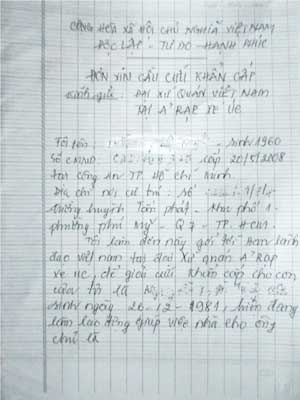 CỘNG HÒA XÃ HỘI CHỦ NGHĨA VIỆT NAM
ĐỘC LẬP - TỰ DO - HẠNH PHÚC
ĐƠN XIN CẦU CỨU KHẨN CẤP
Kính gửi: ĐẠI SỨ QUÁN VIỆT NAM
TẠI Ả RẠP XE ÚC
Tôi tên: sinh 1960
Số CMND: cấp 20/5/2008
tại công an TP. Hồ Chí Minh.
Địa chỉ nơi cư trú: số
đường huỳnh Tấn phát - khu phố 1 -
phường phú Mỹ - Q7 - TP. HCM.
Tôi làm đơn này gởi tới Ban lãnh
đạo việt nam tại đại sứ quán Ả Rạp
xe úc, để giải cứu khẩn cấp cho con
của tôi là
sinh ngày 26-12-1981, hiện đang
làm lao động giúp việc nhà cho ông
chủ là